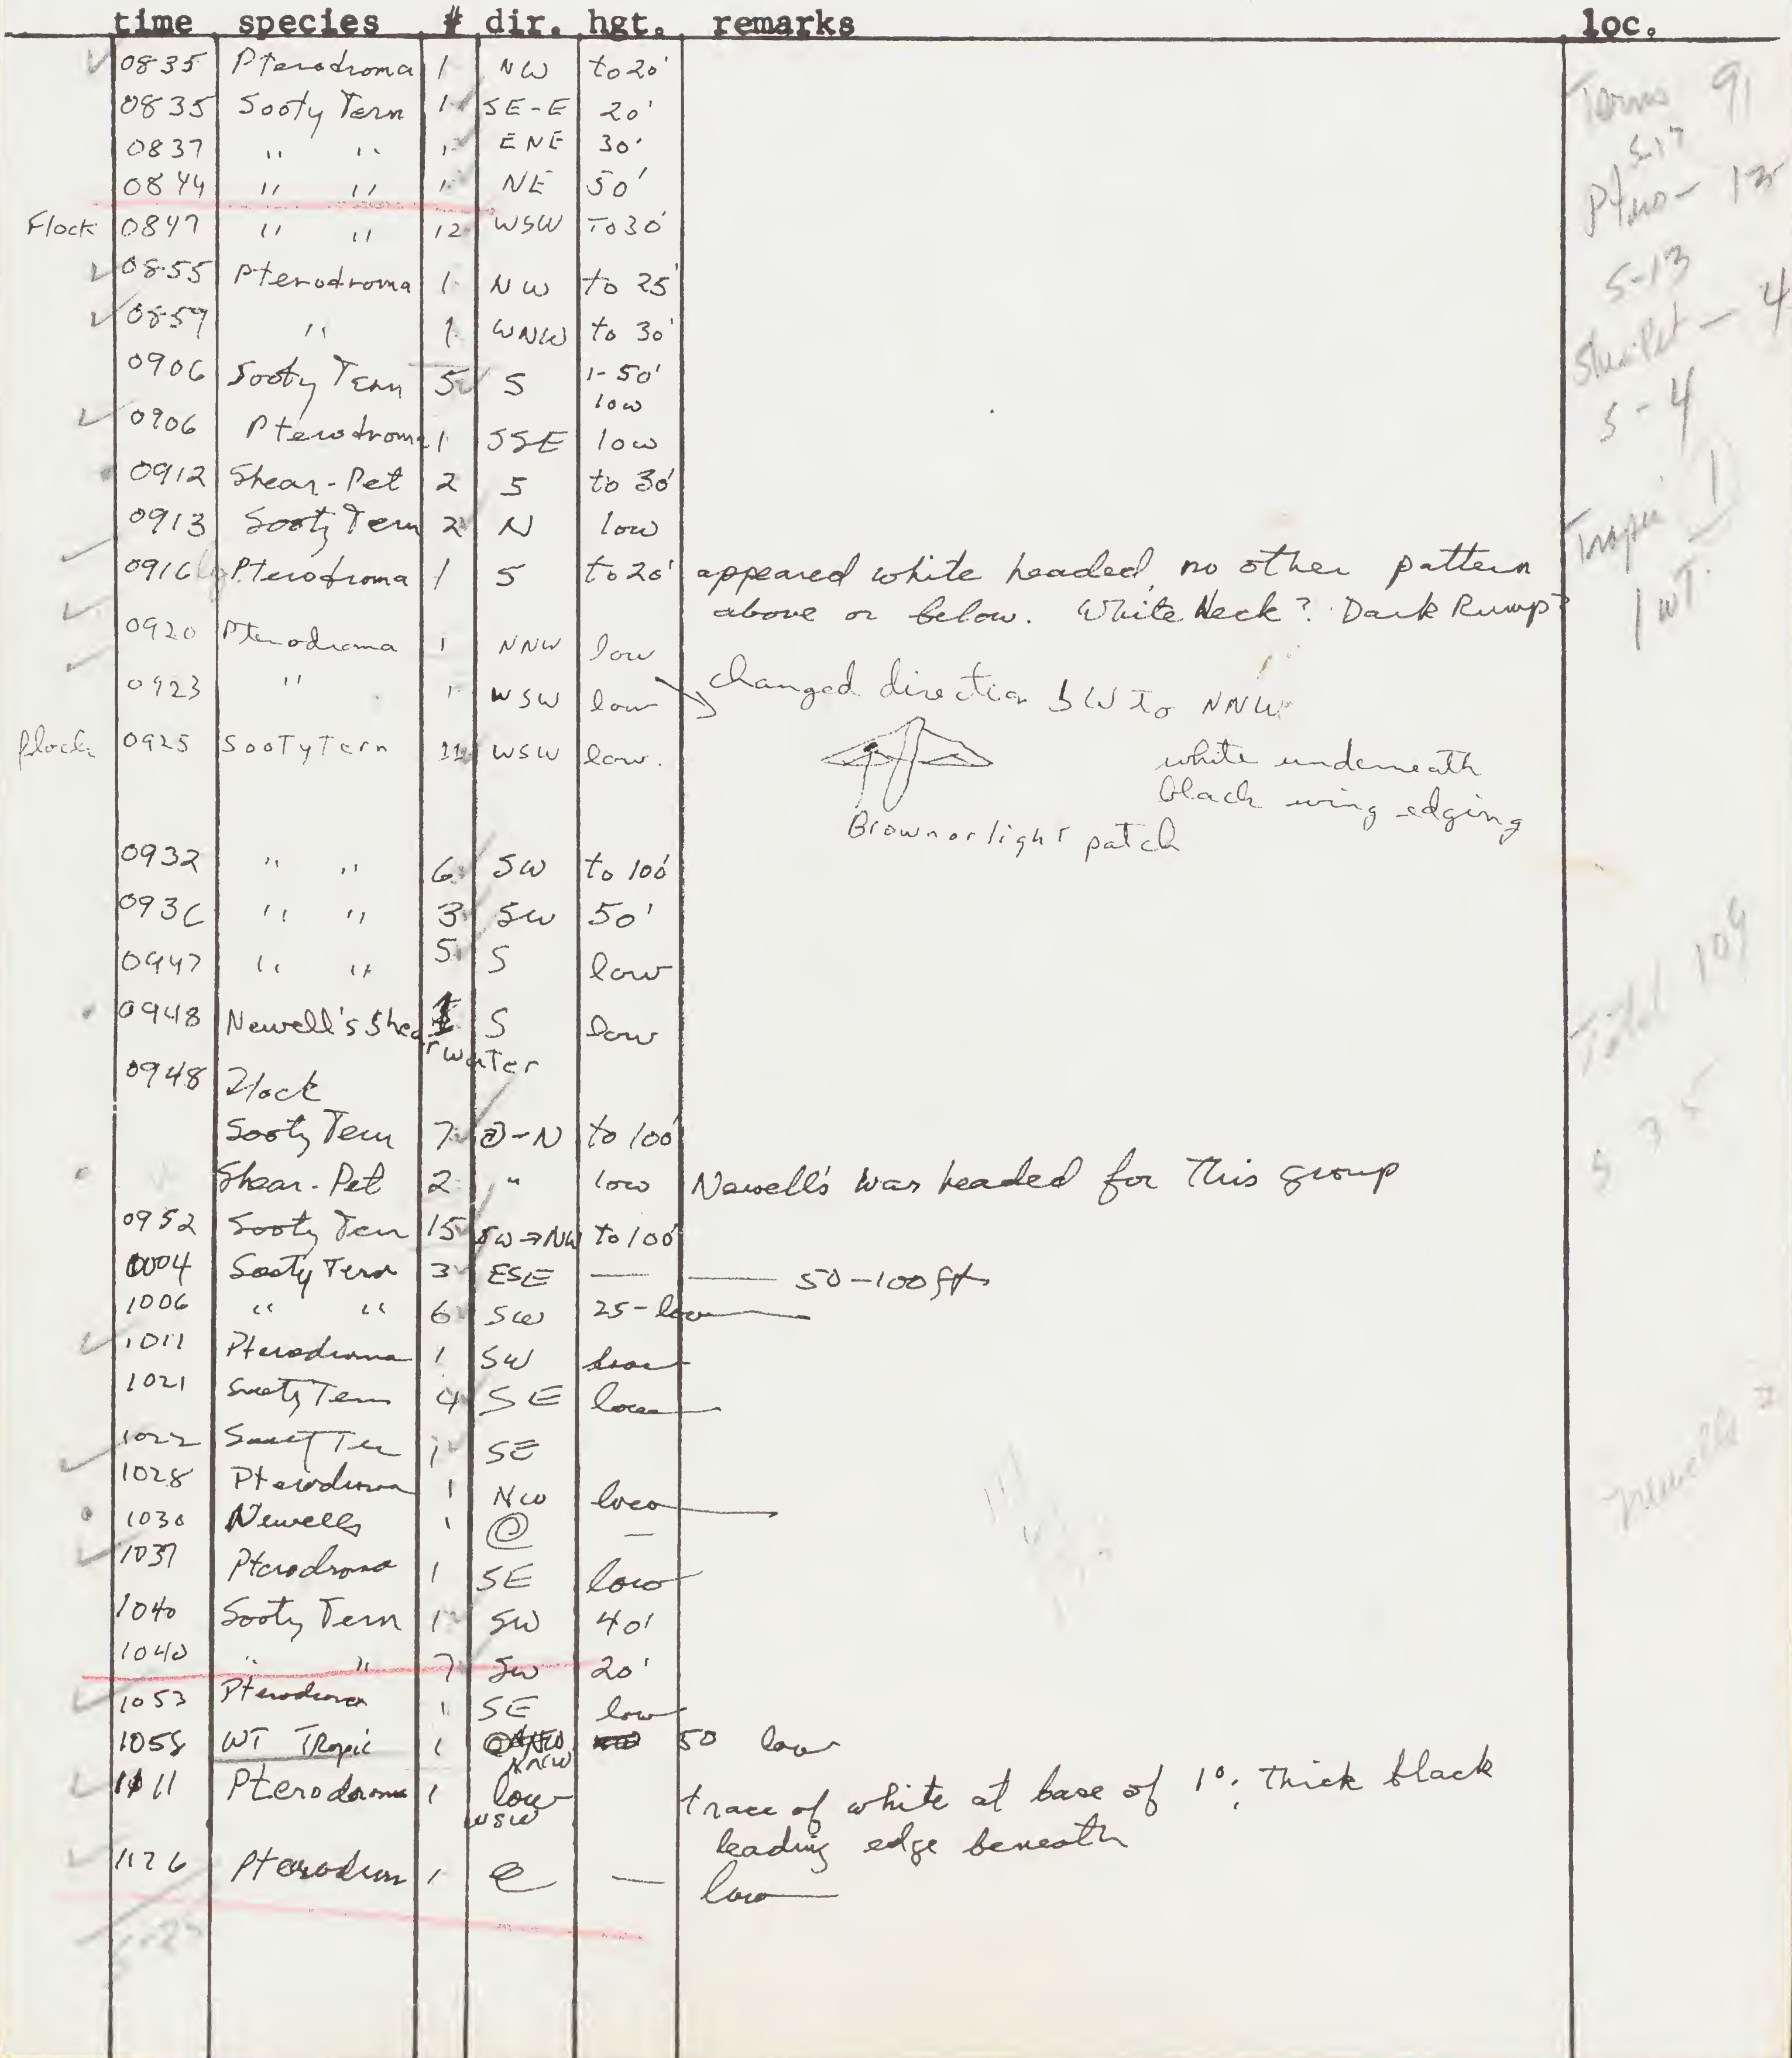 time species # dir. hgt. remarks loc.
0835 Pterodroma 1 NW to 20'
0835 Sooty Tern 1 SE-E 20'
0837 " " 1 ENE 30'
0844 " " 1 NE 50'
Flock 0847 " " 12 WSW To 30'
0855 Pterodroma 1 NW to 25'
0859 " 1 WNW to 30'
0906 Sooty Tern 5 S 1-50'
low
0906 Pterodroma 1 SSE low
0912 Shear-Pet 2 S to 30'
0913 Sooty Tern 2 N low
0916 Pterodroma 1 S to 20' appeared white headed, no other pattern
above or below. White Neck? Dark Rump?
0920 Pterodroma 1 NNW low
0923 " 1 WSW low changed direction SW To NNW
Flock 0925 Sooty Tern 11 WSW low.
white underneath
black wing edging
Brown or light patch
0932 " " 6 SW to 100'
0936 " " 3 SW 50'
0947 " " 5 S low
0948 Newell's Shearwater 1 S low
0948 Flock
Sooty Tern 7 @-N to 100'
Shear-Pet 2 " low Newell's was headed for This group
0952 Sooty Tern 15 SW→NW to 100'
1004 Sooty Tern 3 ESE — — 50-100 ft
1006 " " 6 SW 25-low
1011 Pterodroma 1 SW low
1021 Sooty Tern 4 SE low
1022 Sooty Ter 1 SE
1028 Pterodroma 1 NW low
1030 Newells 1 @ —
1037 Pterodroma 1 SE low
1040 Sooty Tern 1 SW 40'
1040 " " 7 SW 20'
1053 Pterodroma 1 SE low
1058 WT Tropic 1 NNW 50 low
1111 Pterodroma 1 low WSW trace of white at base of 1°; Thick black
leading edge beneath
1126 Pterodrom 1 @ — low
Terns 91
S-17
Ptero-
S-13
Shear-Pet — 4
S-4
Tropic 1
1 WT.
Total 109
S 35
Newells 2